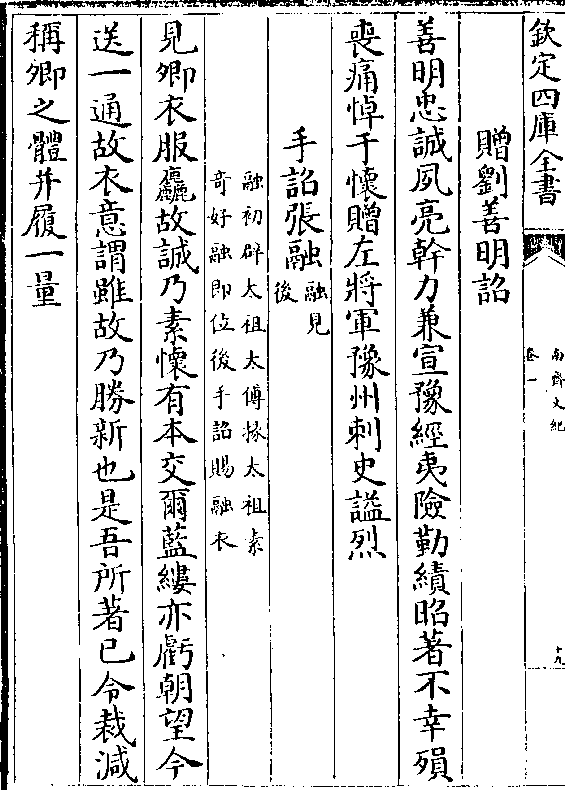 欽定四庫全書
南齊文紀
卷一
十九
贈劉善明詔
善明忠誠夙亮幹力兼宣豫經夷險勤績昭著不幸殞
喪痛悼于懷贈左將軍豫州刺史謚烈
手詔張融
融見
後
融初辟太祖太傅掾太祖素
奇好融即位後手詔賜融衣
見卿衣服麤故誠乃素懷有本交爾藍縷亦虧朝望今
送一通故衣意謂雖故乃勝新也是吾所著已令裁減
稱卿之體并履一量